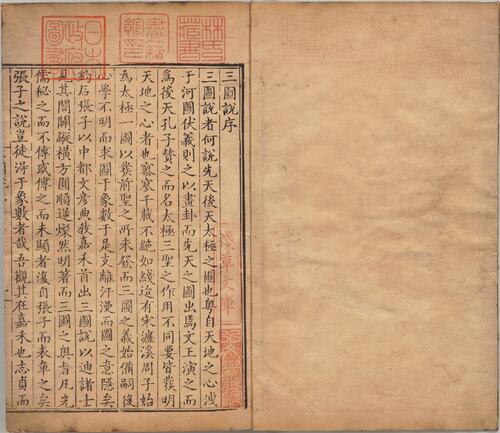 三圖說序
三圖說者何說先天後天太極之圖也粤自天地之心洩
于河圖伏羲則之以畫卦而先天之圖出焉文王演之而
爲後天孔子贊之而名太極三聖之作用不同要皆發明
天地之心者也寥寥千載不絕如綫迨有宋濂溪周子始
爲太極一圖以發前聖之所未發而三圖之義始備嗣後
心學不明而求圖于象數于是支離汗漫而圖之意隱矣
後張子以中都文彥典敎嘉禾首出三圖說以迪諸士
見其闔闢縱橫方圓順逆燦然明著而三圖之奥旨凡先
儒秘之而不傳或傳之而未顯者復自張子而表章之矣
張子之說豈徒得于象數者哉吾觀其在嘉禾也志貞而
日本
政府
圖書
書籍
館印
林氏
藏書
淺草文庫